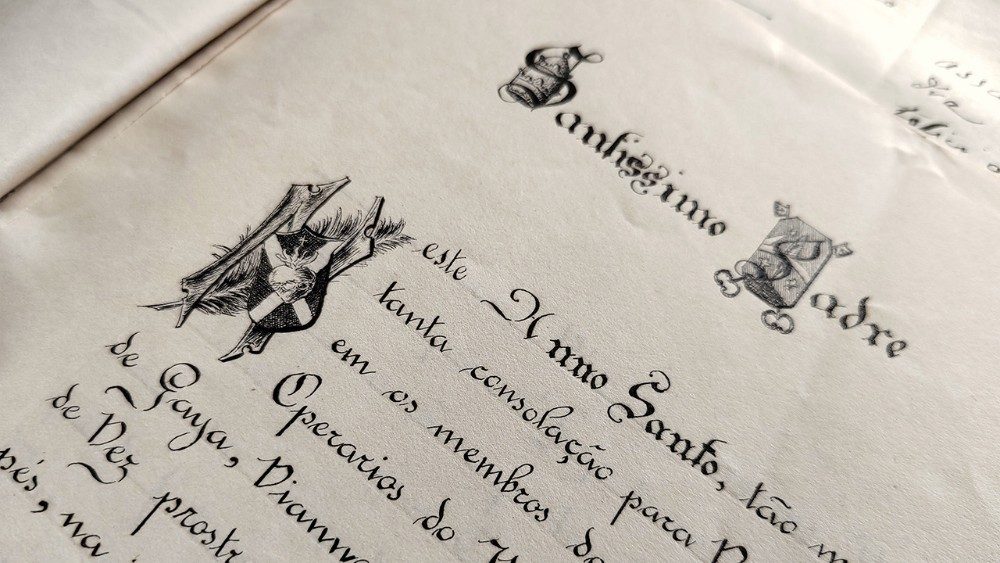 Santissimo Padre
Neste Anno Santo, tão
tanta consolação para
em os membros do
Operarios do
de Gaya, Vianna
de Vez prostr
pés, na